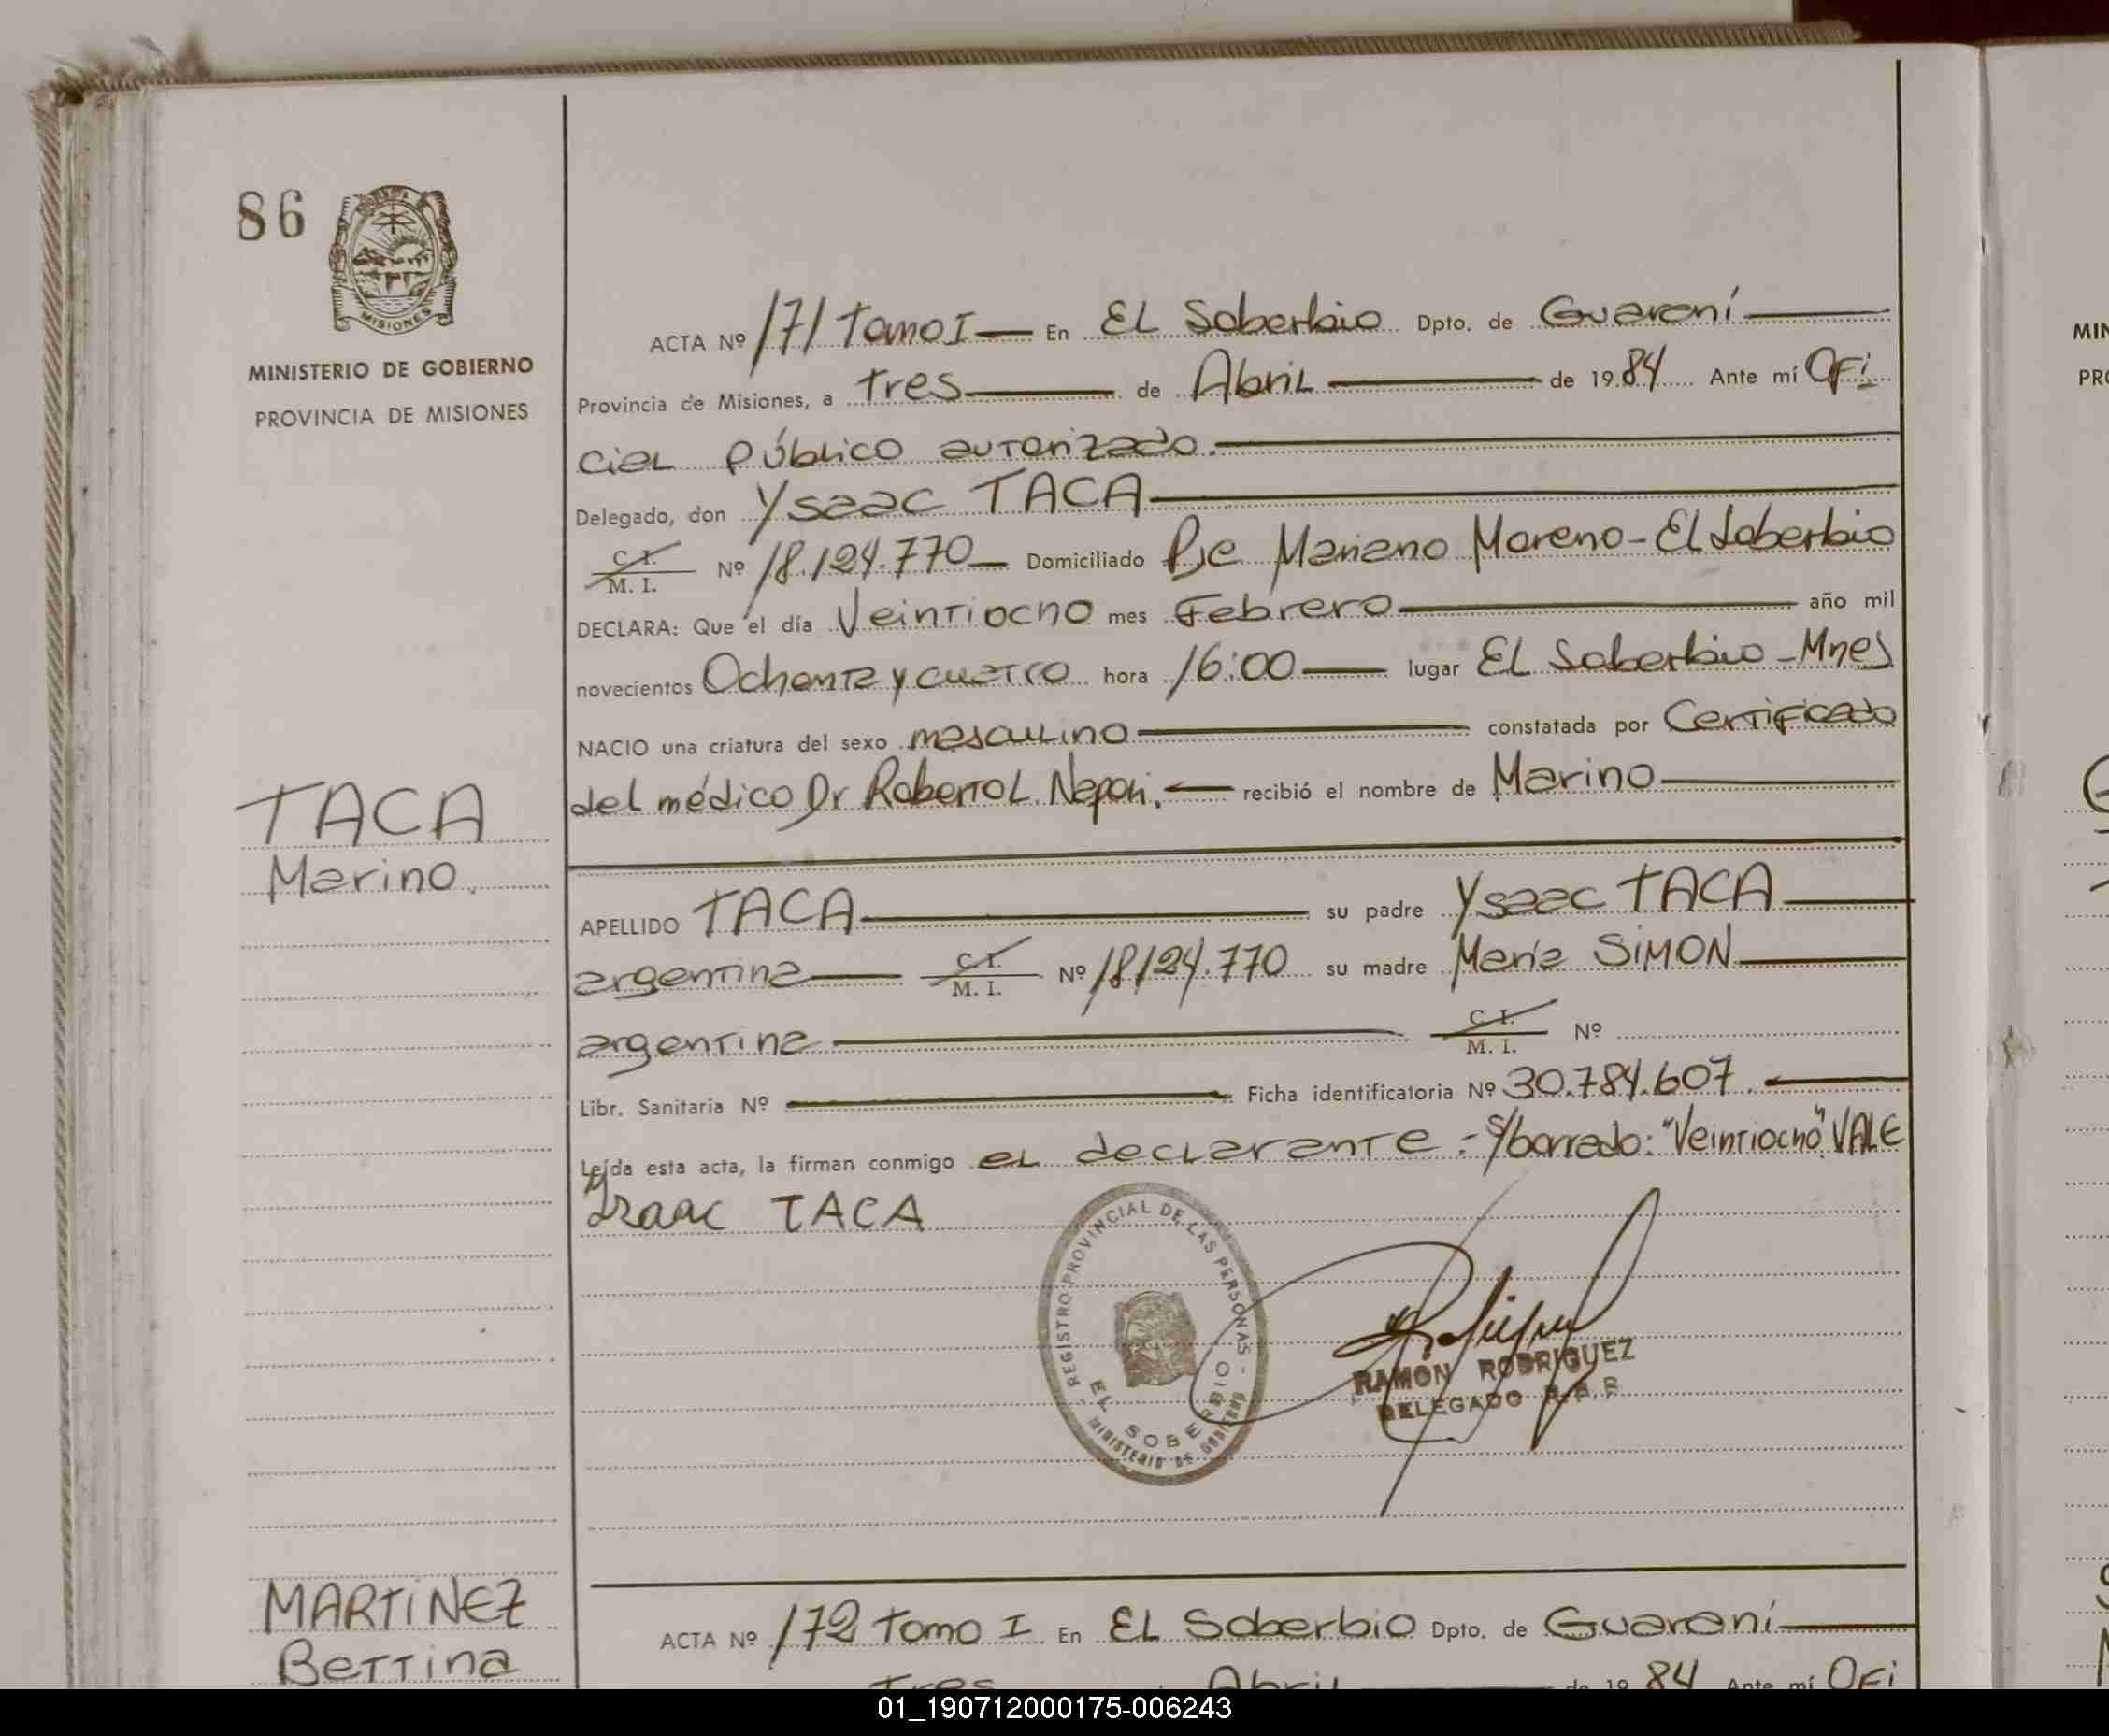 86
MISIONES
MINISTERIO DE GOBIERNO
PROVINCIA DE MISIONES
ACTA Nº 171 Tomo I — En EL Soberbio Dpto. de Guaraní
Provincia de Misiones, a Tres de Abril de 1984 Ante mí OFi
ciaL Público autorizado.
Delegado, don Ysaac TACA
C. I. M. I. Nº 18.124.770 — Domiciliado Pje Mariano Moreno - El Soberbio
DECLARA: Que el día Veintiocho mes Febrero año mil
novecientos Ochenta y cuatro hora 16:00 lugar EL Soberbio - Mnes
NACIO una criatura del sexo mascuLino constatada por Certificado
del médico Dr Roberto L. recibió el nombre de Marino
TACA
Marino.
APELLIDO TACA su padre Ysaac TACA
argentina C. I. M. I. Nº 18.124.770 su madre María SIMON
argentina C. I. M. I. Nº
Libr. Sanitaria Nº Ficha identificatoria Nº 30.784.607.
Leída esta acta, la firman conmigo eL decLarante :- s/borrado: "Veintiocho" VALE
Isaac TACA
REGISTRO PROVINCIAL DE LAS PERSONAS -
EL SOBERBIO
MINISTERIO DE GOBIERNO
RAMON RODRIGUEZ
DELEGADO
MARTINEZ
Bettina
ACTA Nº 172 Tomo I En EL Soberbio Dpto. de Guaraní
Tres Abril de 1984 Ante mí OFi
MIN
PRO
01_190712000175-006243